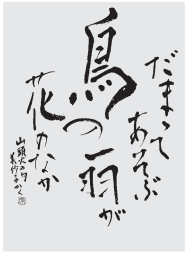 だまって
あそぶ
鳥の一羽が
花のなか
山頭火の句
かく